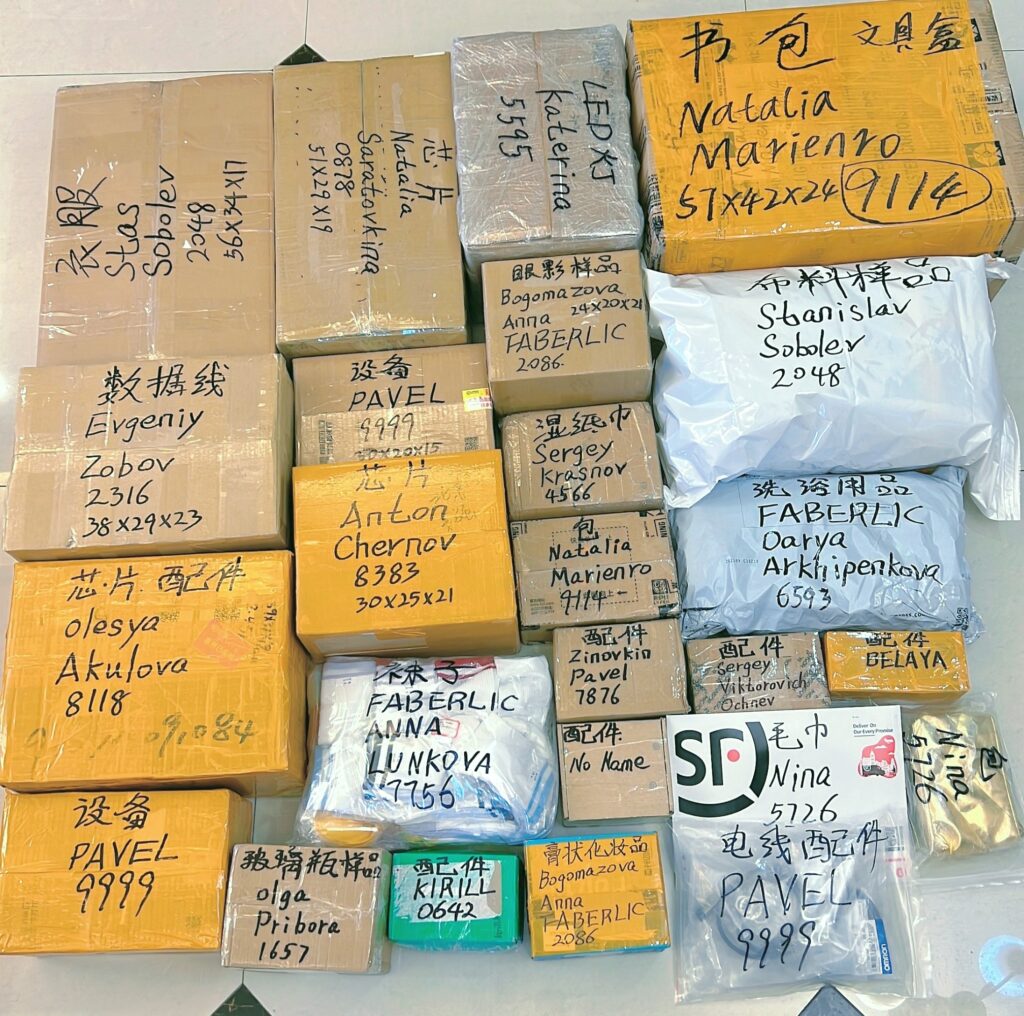 衣服
Stas
Sobolev
2048
56X34X17
芯片
Natalia
Saratovkina
0878
51X29X19
LED灯
Katerina
5595
书包 文具盒
Natalia
Marienro
57X42X24 9114
数据线
Evgeniy
Zobov
2316
38X29X23
设备
PAVEL
9999
30X20X15
眼影样品
Bogomazova
Anna 24X20X21
FABERLIC
2086
布料样品
Stanislav
Sobolev
2048
芯片
Anton
Chernov
8383
30X25X21
湿纸巾
Sergey
Krasnov
4566
包
Natalia
Marienro
9114
洗浴用品
FABERLIC
Darya
Arkhipenkova
6593
芯片.配件
olesya
Akulova
8118
9,084
袜子
FABERLIC
ANNA
LUNKOVA
7756
配件
Zinovkin
Pavel
7876
配件
Sergey
Viktorovich
Ochnev
配件
BELAYA
配件
No Name
SF
Deliver On
Our Every Promise
毛巾
Nina
5726
包
Nina
5726
设备
PAVEL
9999
玻璃瓶样品
olga
Pribora
1657
配件
KIRILL
0642
膏状化妆品
Bogomazova
Anna
FABERLIC
2086
电线配件
PAVEL
9999